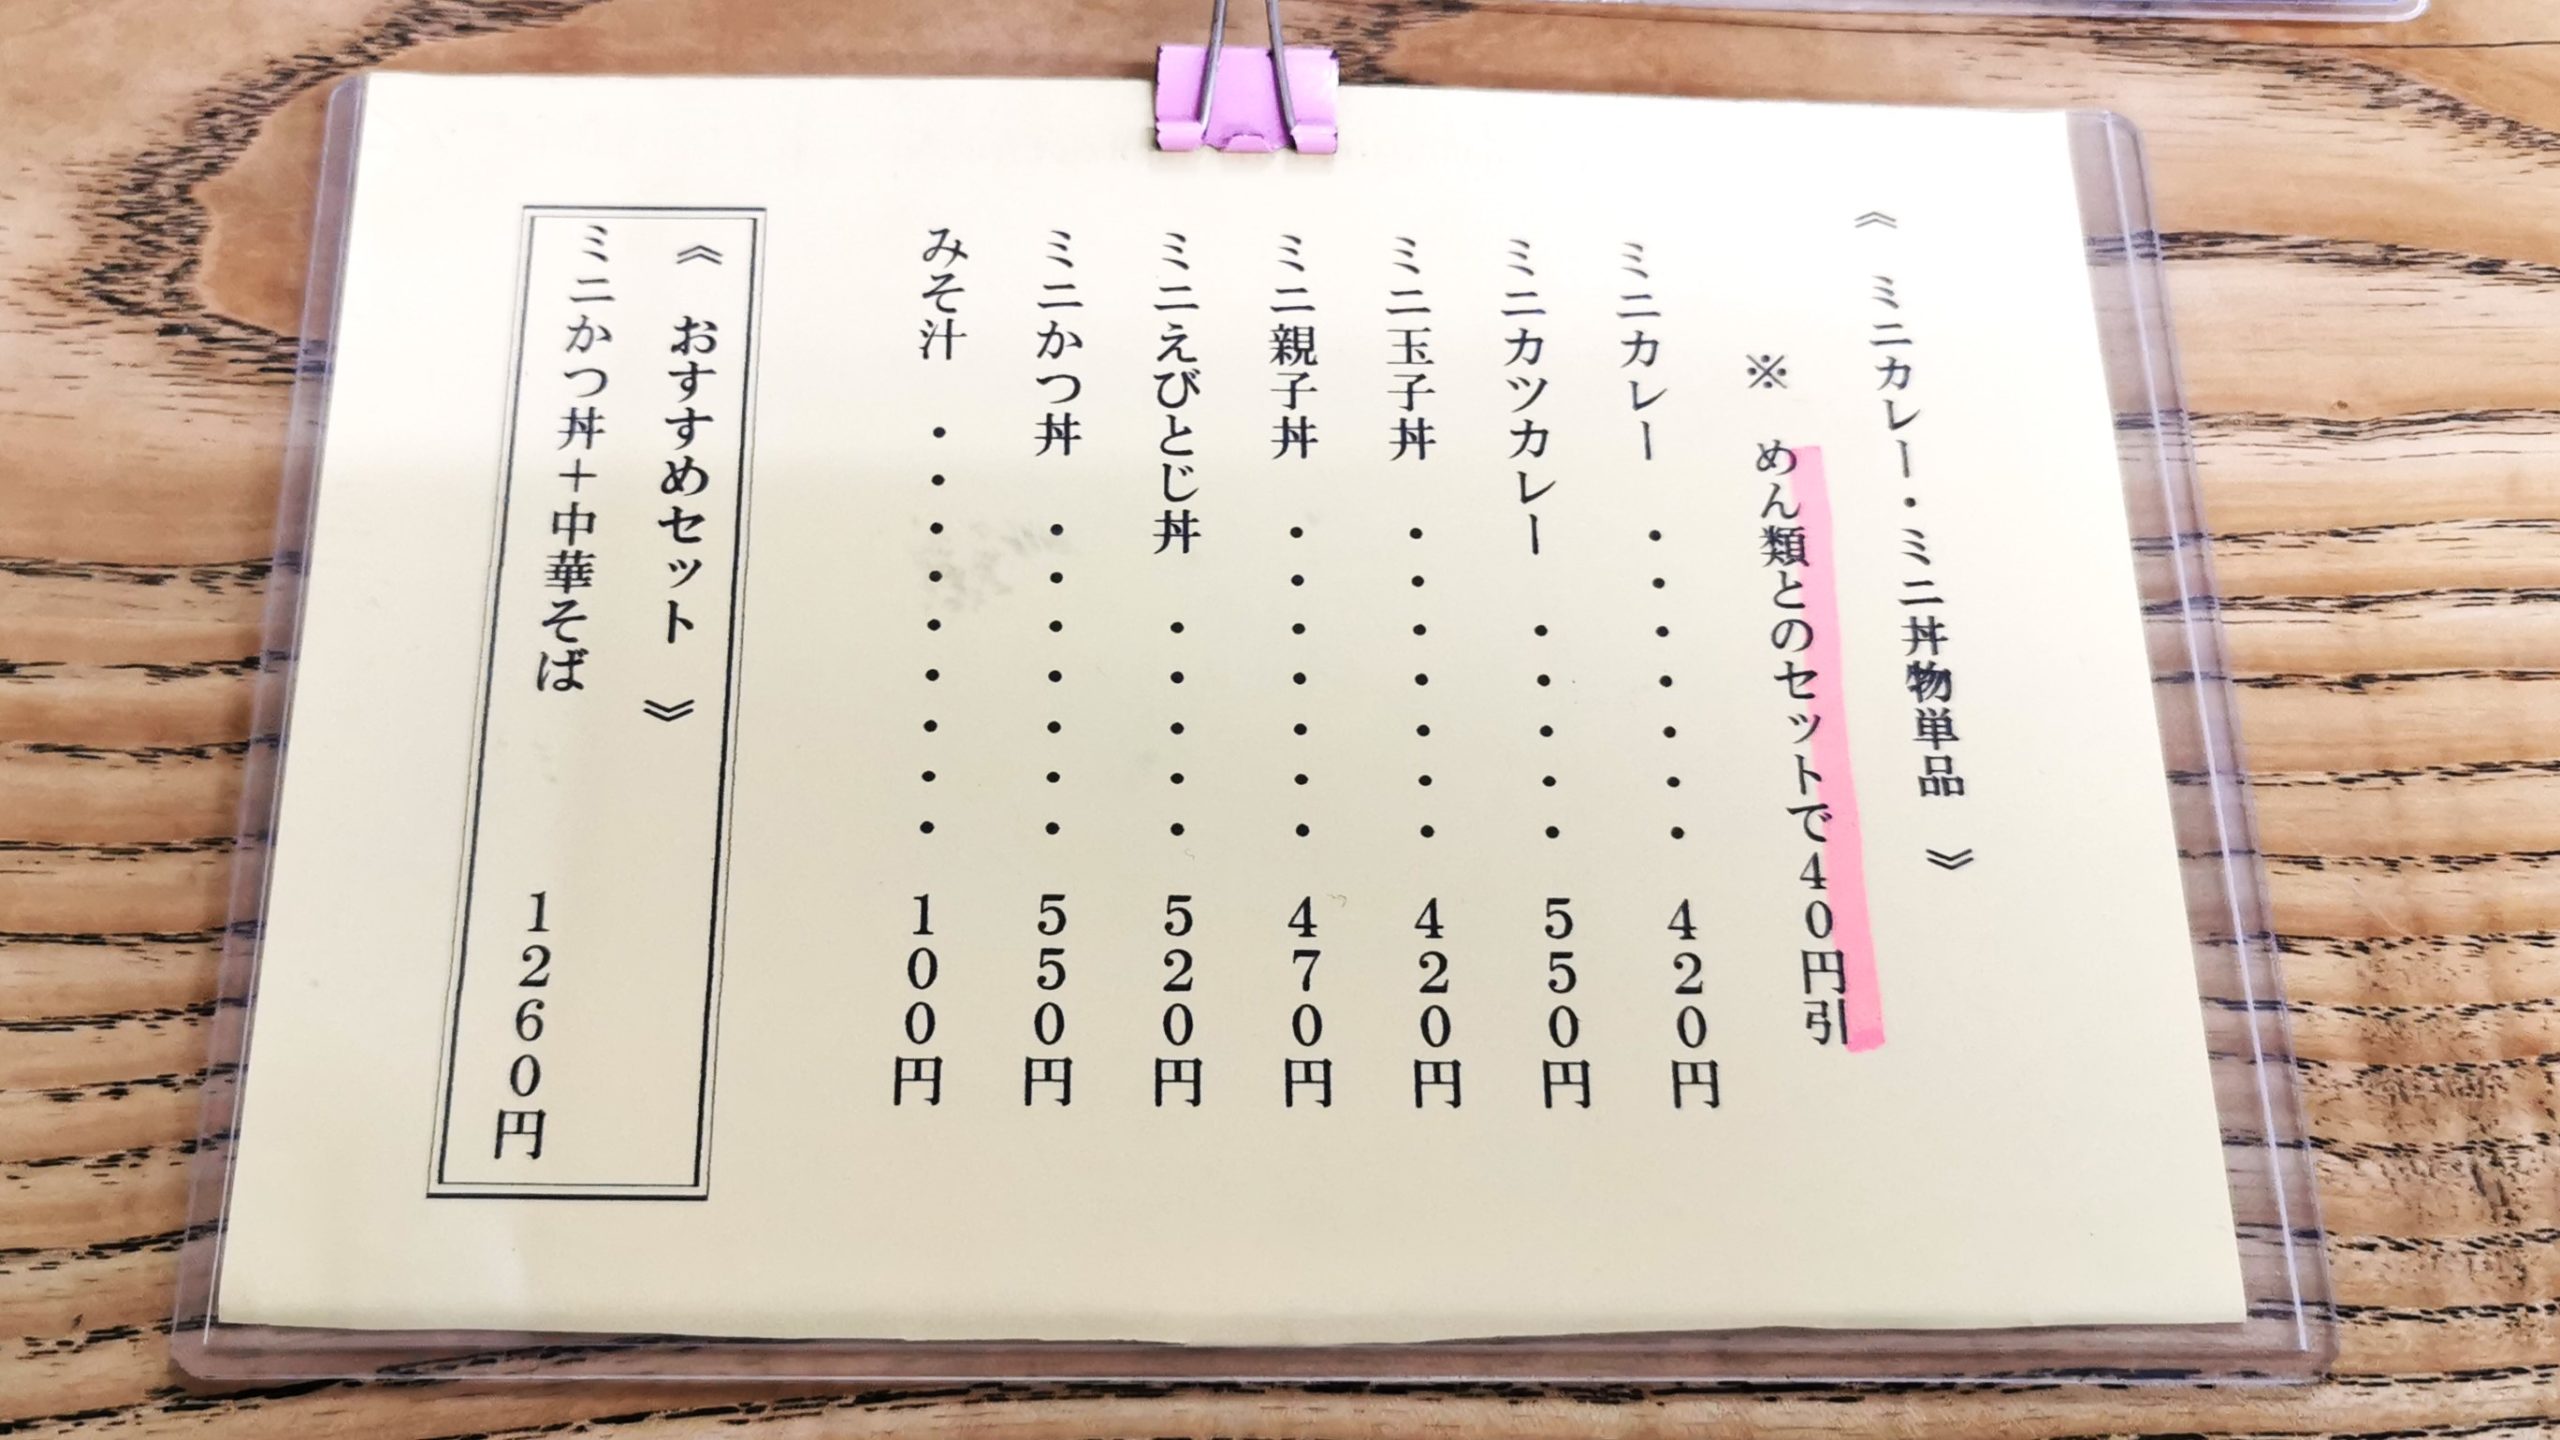 《 ミニカレー・ミニ丼物単品 》
※ めん類とのセットで40円引
ミニカレー ・・・・・・・ 420円
ミニカツカレー ・・・・・ 550円
ミニ玉子丼 ・・・・・・・ 420円
ミニ親子丼 ・・・・・・・ 470円
ミニえびとじ丼 ・・・・・ 520円
ミニかつ丼 ・・・・・・・ 550円
みそ汁 ・・・・・・・・・ 100円
《 おすすめセット 》
ミニかつ丼＋中華そば 1260円